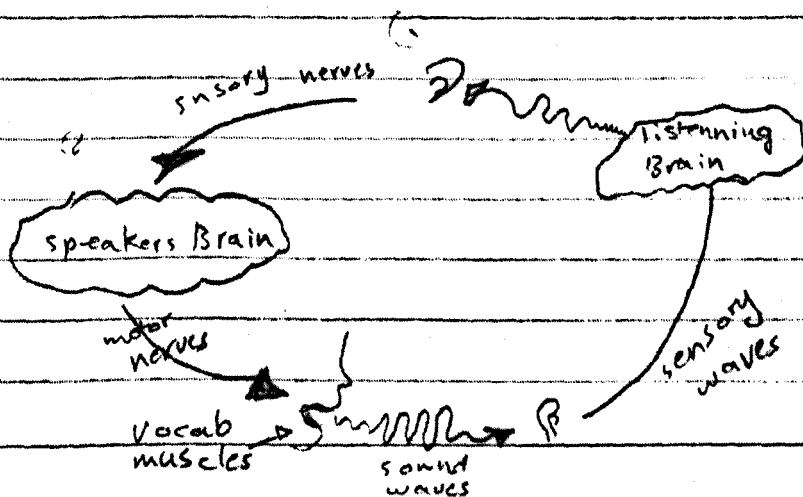 snsory nerves
Listenning
Brain
speakers Brain
motor
nerves
sensory
waves
vocab
muscles
sound
waves